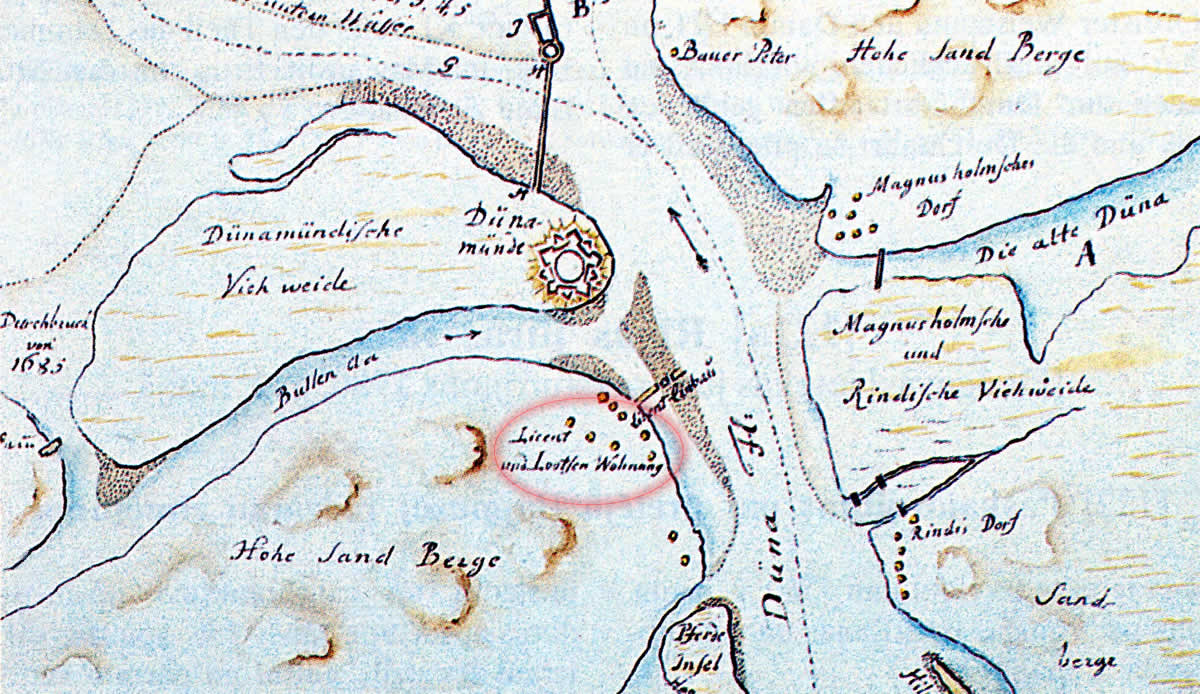 3, 4, 5
B.
J
H
G
Bauer Peter
Hohe Sand Berge
H
Magnusholmsches
Dorf
Düna-
münde
Dünamündische
Vieh weide
Die alte Düna
A
Durchbruch
von
1685
Bullen Aa
Magnusholmsche
und
Rindische Viehweide
Licent
und Lootsen Wohnung
Düna Fl.
Hohe Sand Berge
Rindis Dorf
Sand
berge
Pferde
Insel